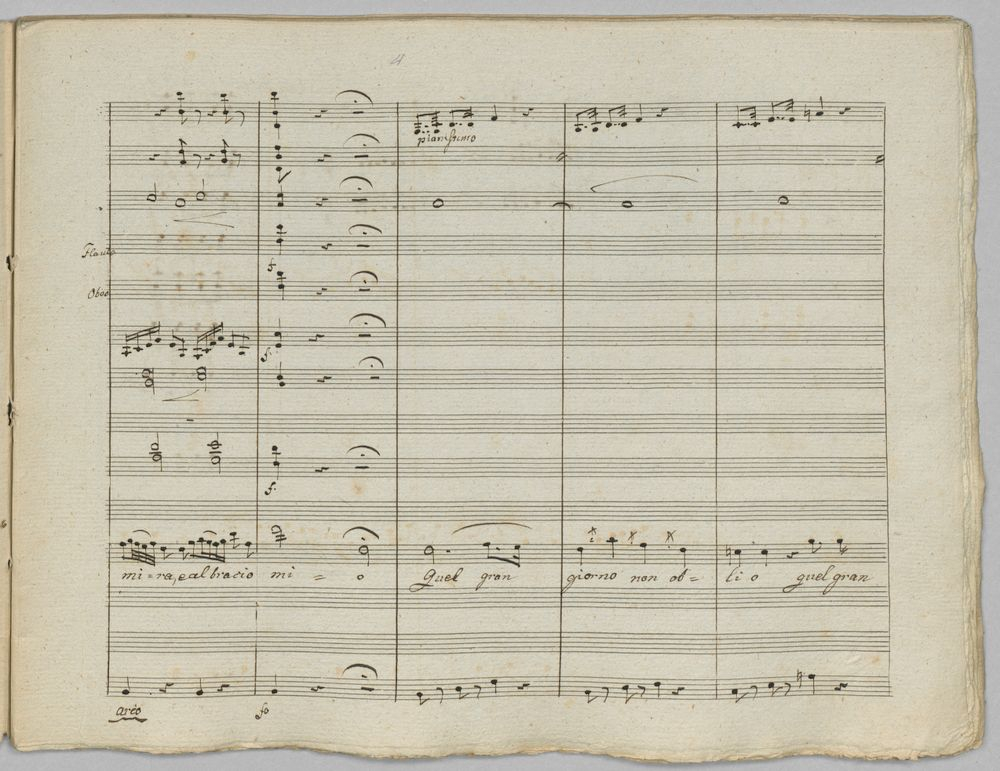 4
pianissimo
Flauto
f
Oboe
f.
f.
mi=ra, e al bracio mi = o Quel gran giorno non ob= li o quel gran
arco
fo